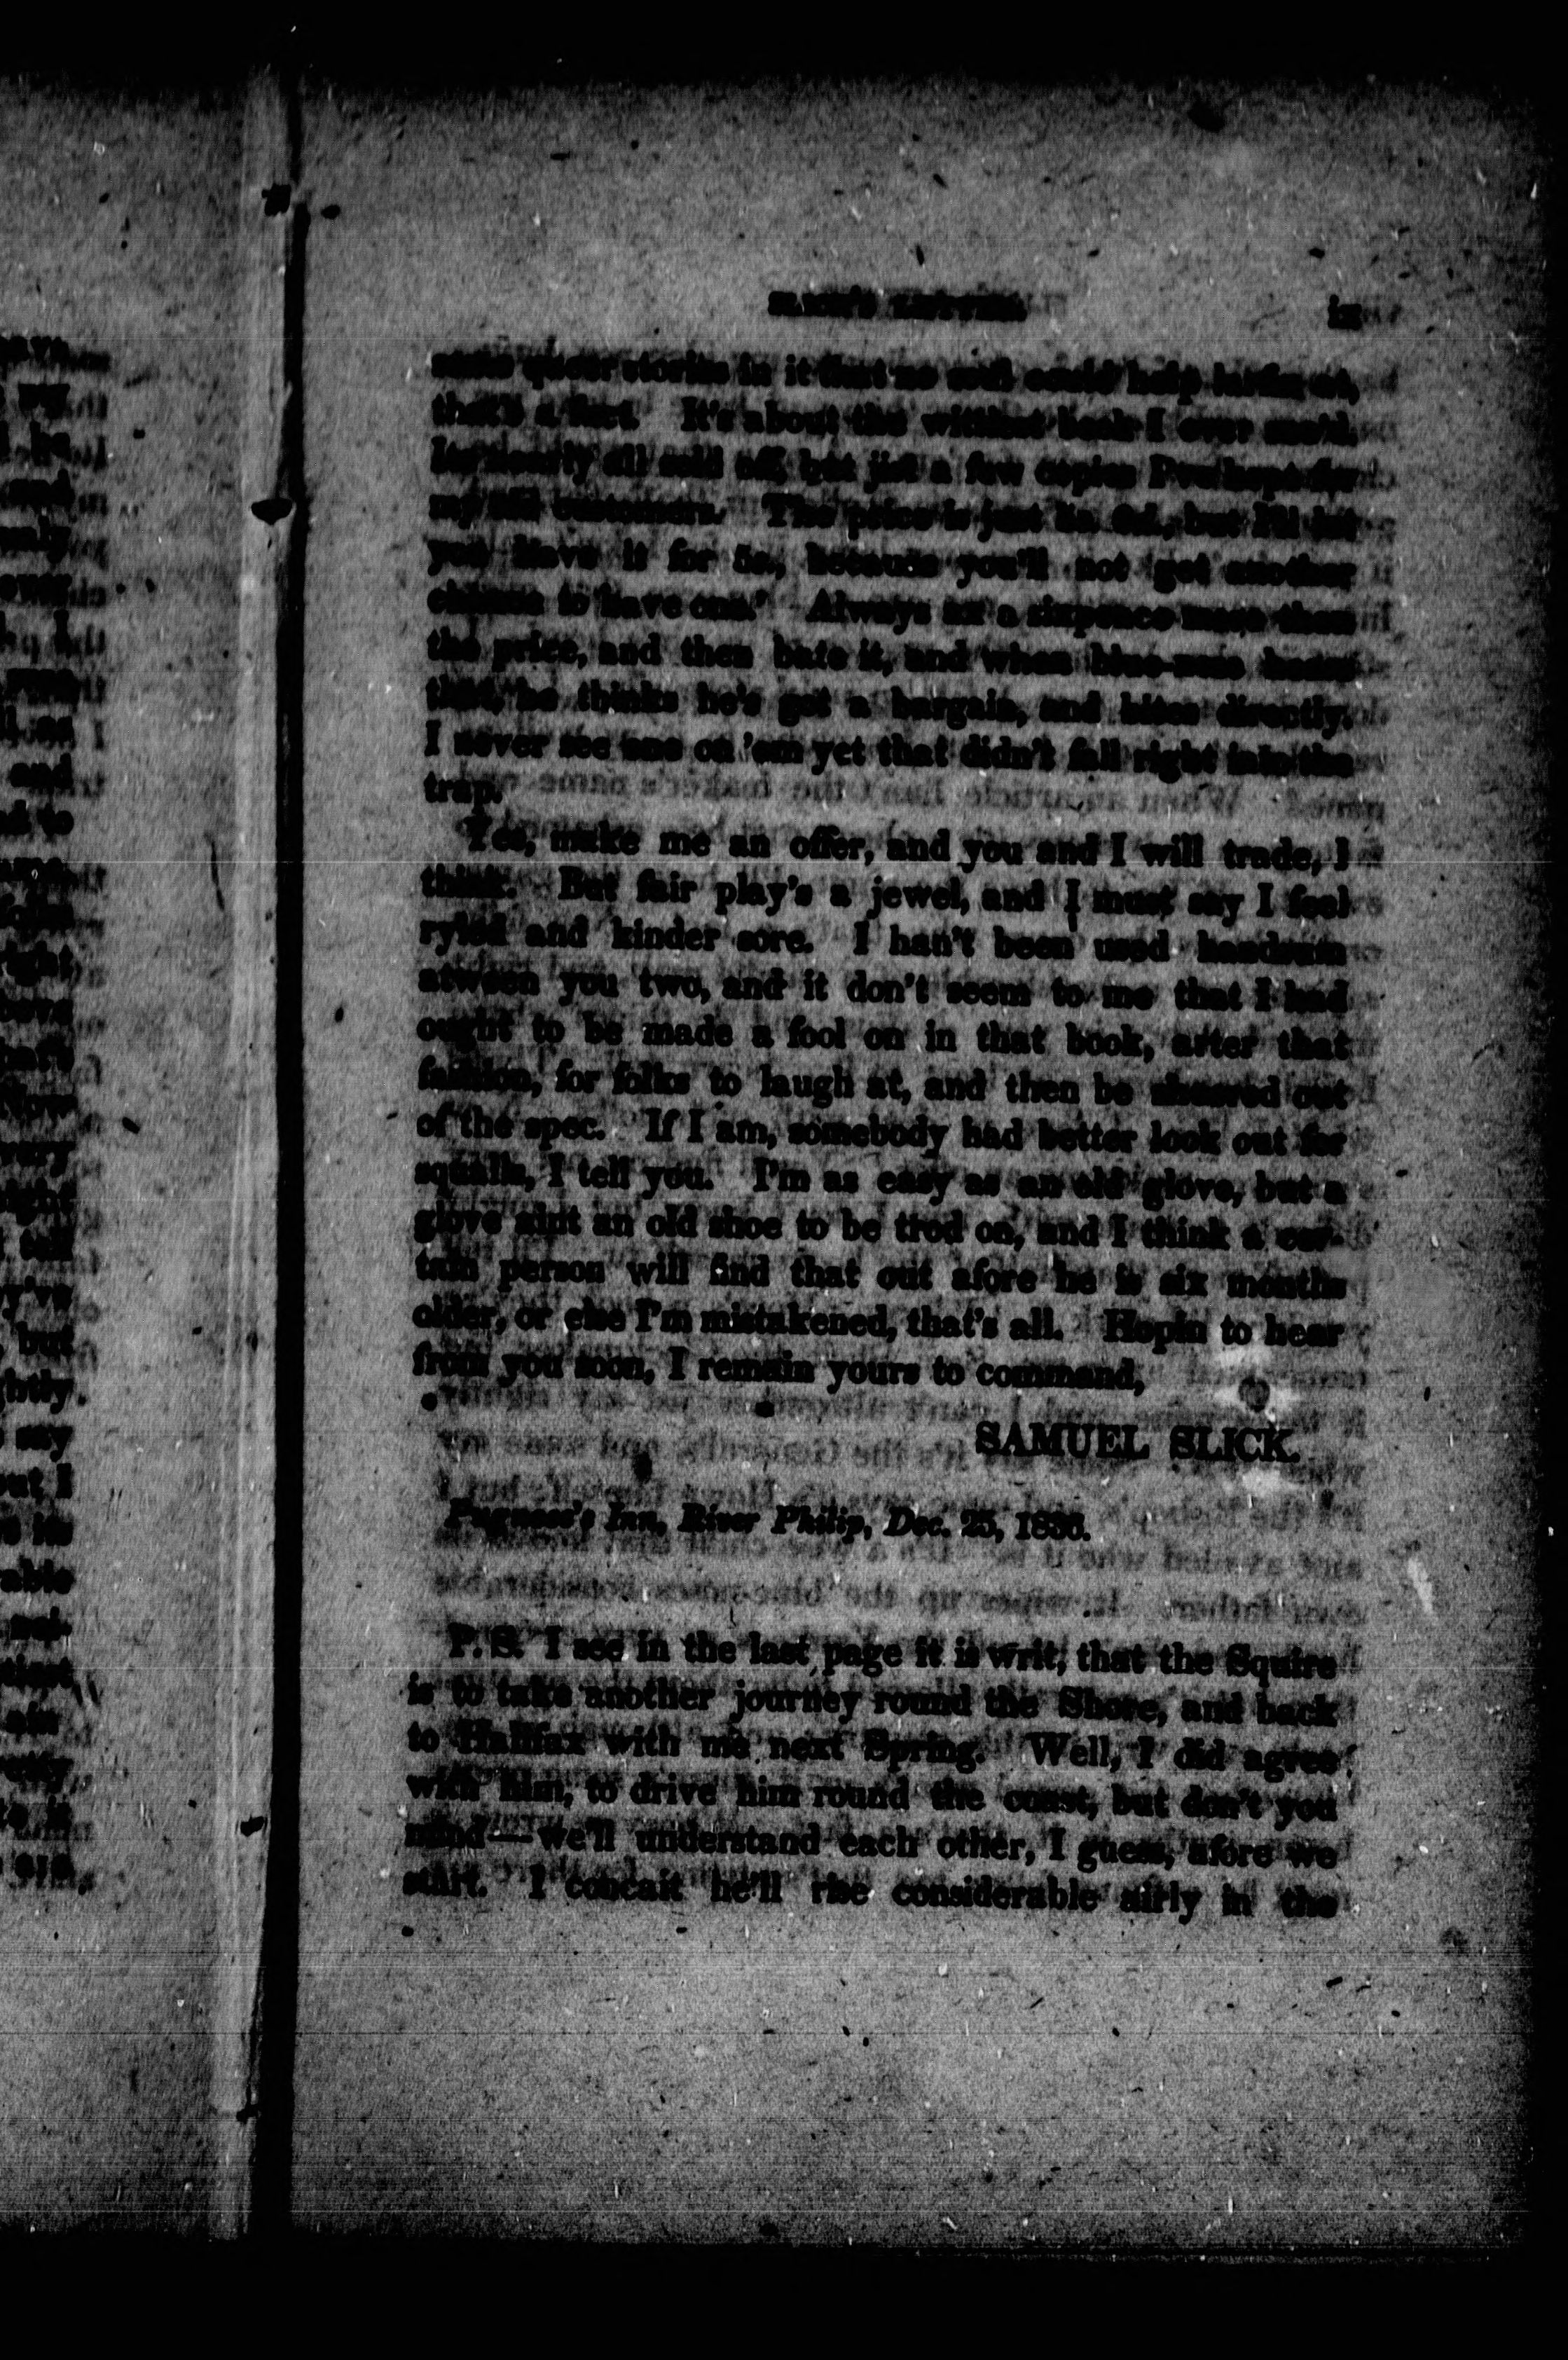 SLICK'S LETTER. ix
some queer stories in it that no soul could help larfin at,
that's a fact. It's about the wittiest book I ever see'd.
Its nearly all sold off, but jist a few copies I've kept for
my old customers. The price is just 5s. 6d., but I'll let
you have it for 5s., because you'll not get another
chance to have one.' Always ax a sixpence more than
the price, and then bate it, and when blue-nose hears
that, he thinks he's got a bargain, and bites directly.
I never see one on 'em yet that didn't fall right into the
trap.
Yes, make me an offer, and you and I will trade, I
think. But fair play's a jewel, and I must say I feel
ryled and kinder sore. I han't been used handsum
atween you two, and it don't seem to me that I had
ought to be made a fool on in that book, arter that
fashion, for folks to laugh at, and then be sheered out
of the spec. If I am, somebody had better look out for
squalls, I tell you. I'm as easy as an old glove, but a
glove aint an old shoe to be trod on, and I think a cer-
tain person will find that out afore he is six months
older, or else I'm mistakened, that's all. Hopin to hear
from you soon, I remain yours to command,
SAMUEL SLICK.
Pugnose's Inn, River Philip, Dec. 25, 1836.
P. S. I see in the last page it is writ, that the Squire
is to take another journey round the Shore, and back
to Halifax with me next Spring. Well, I did agree
with him, to drive him round the coast, but don't you
mind—we'll understand each other, I guess, afore we
start. I concait he'll rise considerable airly in the